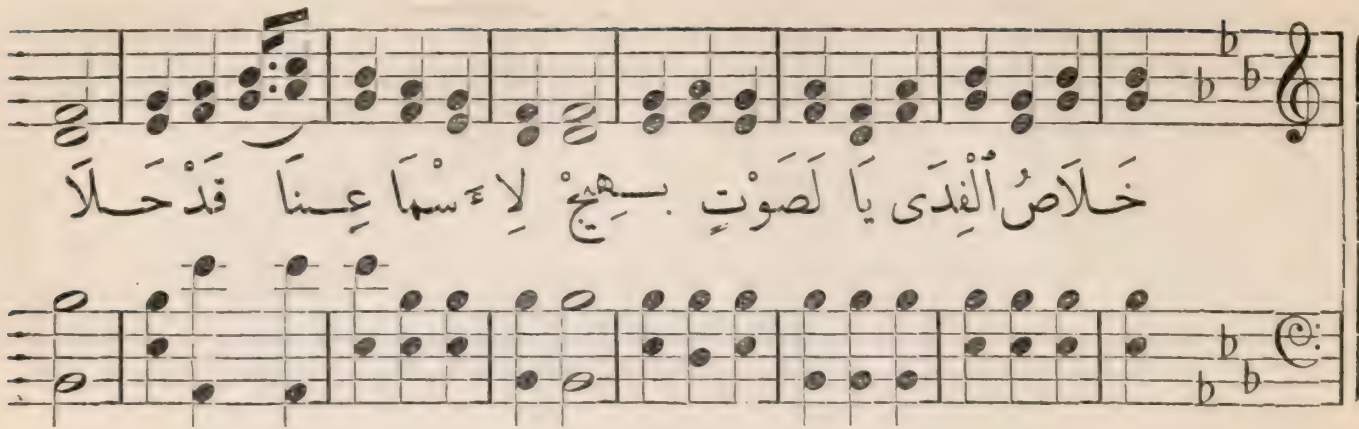 خَلَاصُ ٱلْفِدَى يَا لَصَوْتٍ بَهِيجْ لِاَسْمَاعِنَا قَدْ حَلَا